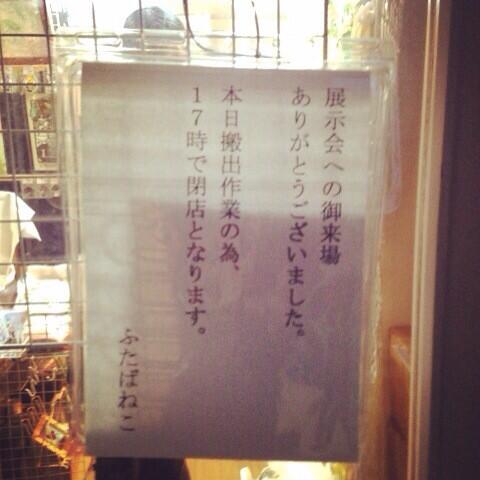 展示会への御来場
ありがとうございました。
本日搬出作業の為、
17時で閉店となります。
ふたばねこ